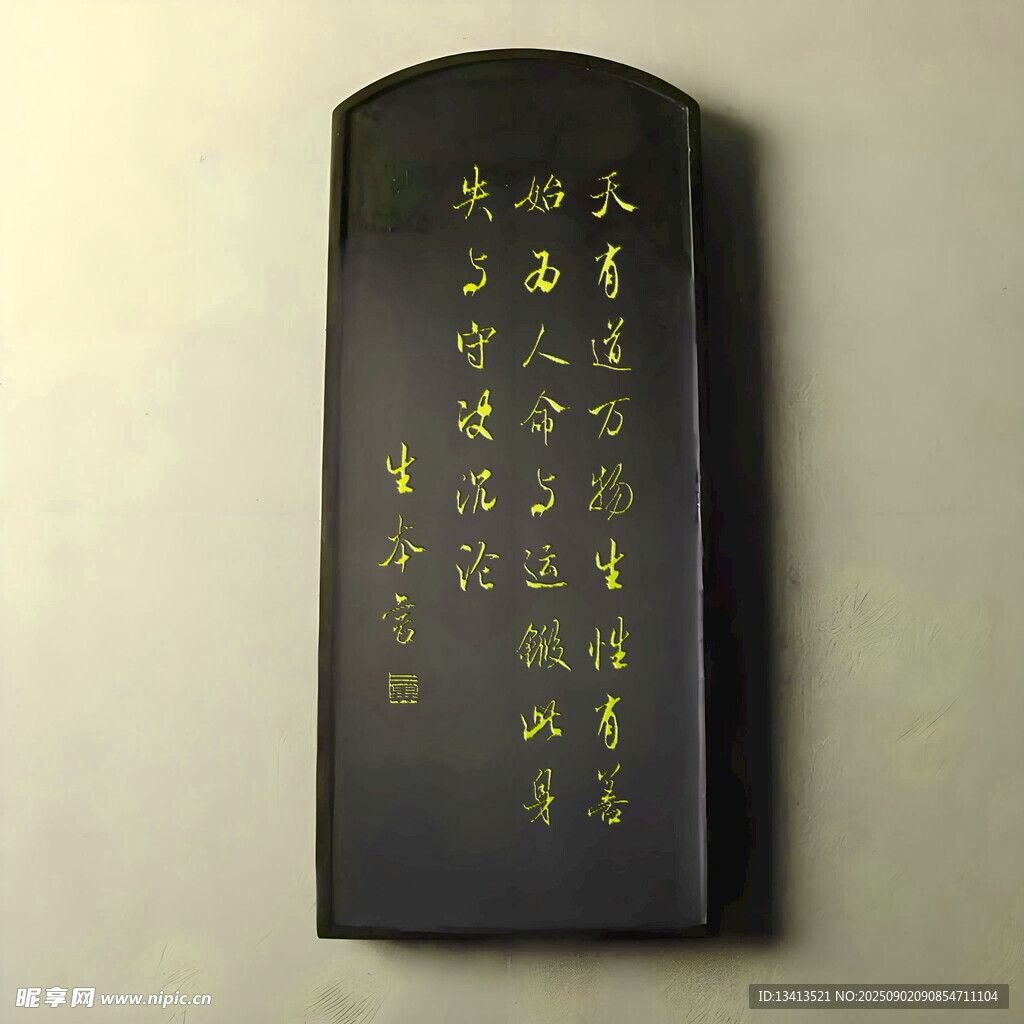 天有道万物生性有善
始为人命与运锻此身
失与守没沉沦
生本书
昵享网 www.nipic.cn
ID:13413521 NO:20250902090854711104